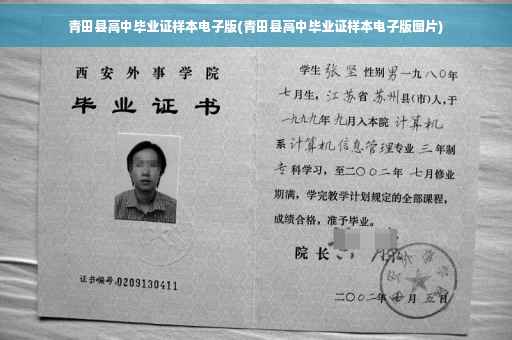 青田县高中毕业证样本电子版(青田县高中毕业证样本电子版图片)
西安外事学院
毕业证书
证书编号:0209130411
学生 张坚 性别 男 一九八〇年
七月生，江苏省苏州县(市)人，于
一九九九年九月入本院 计算机
系 计算机信息管理专业 三 年制
专科学习，至二〇〇二年 七月修业
期满，学完教学计划规定的全部课程，
成绩合格，准予毕业。
院长
二〇〇二年 月 五日